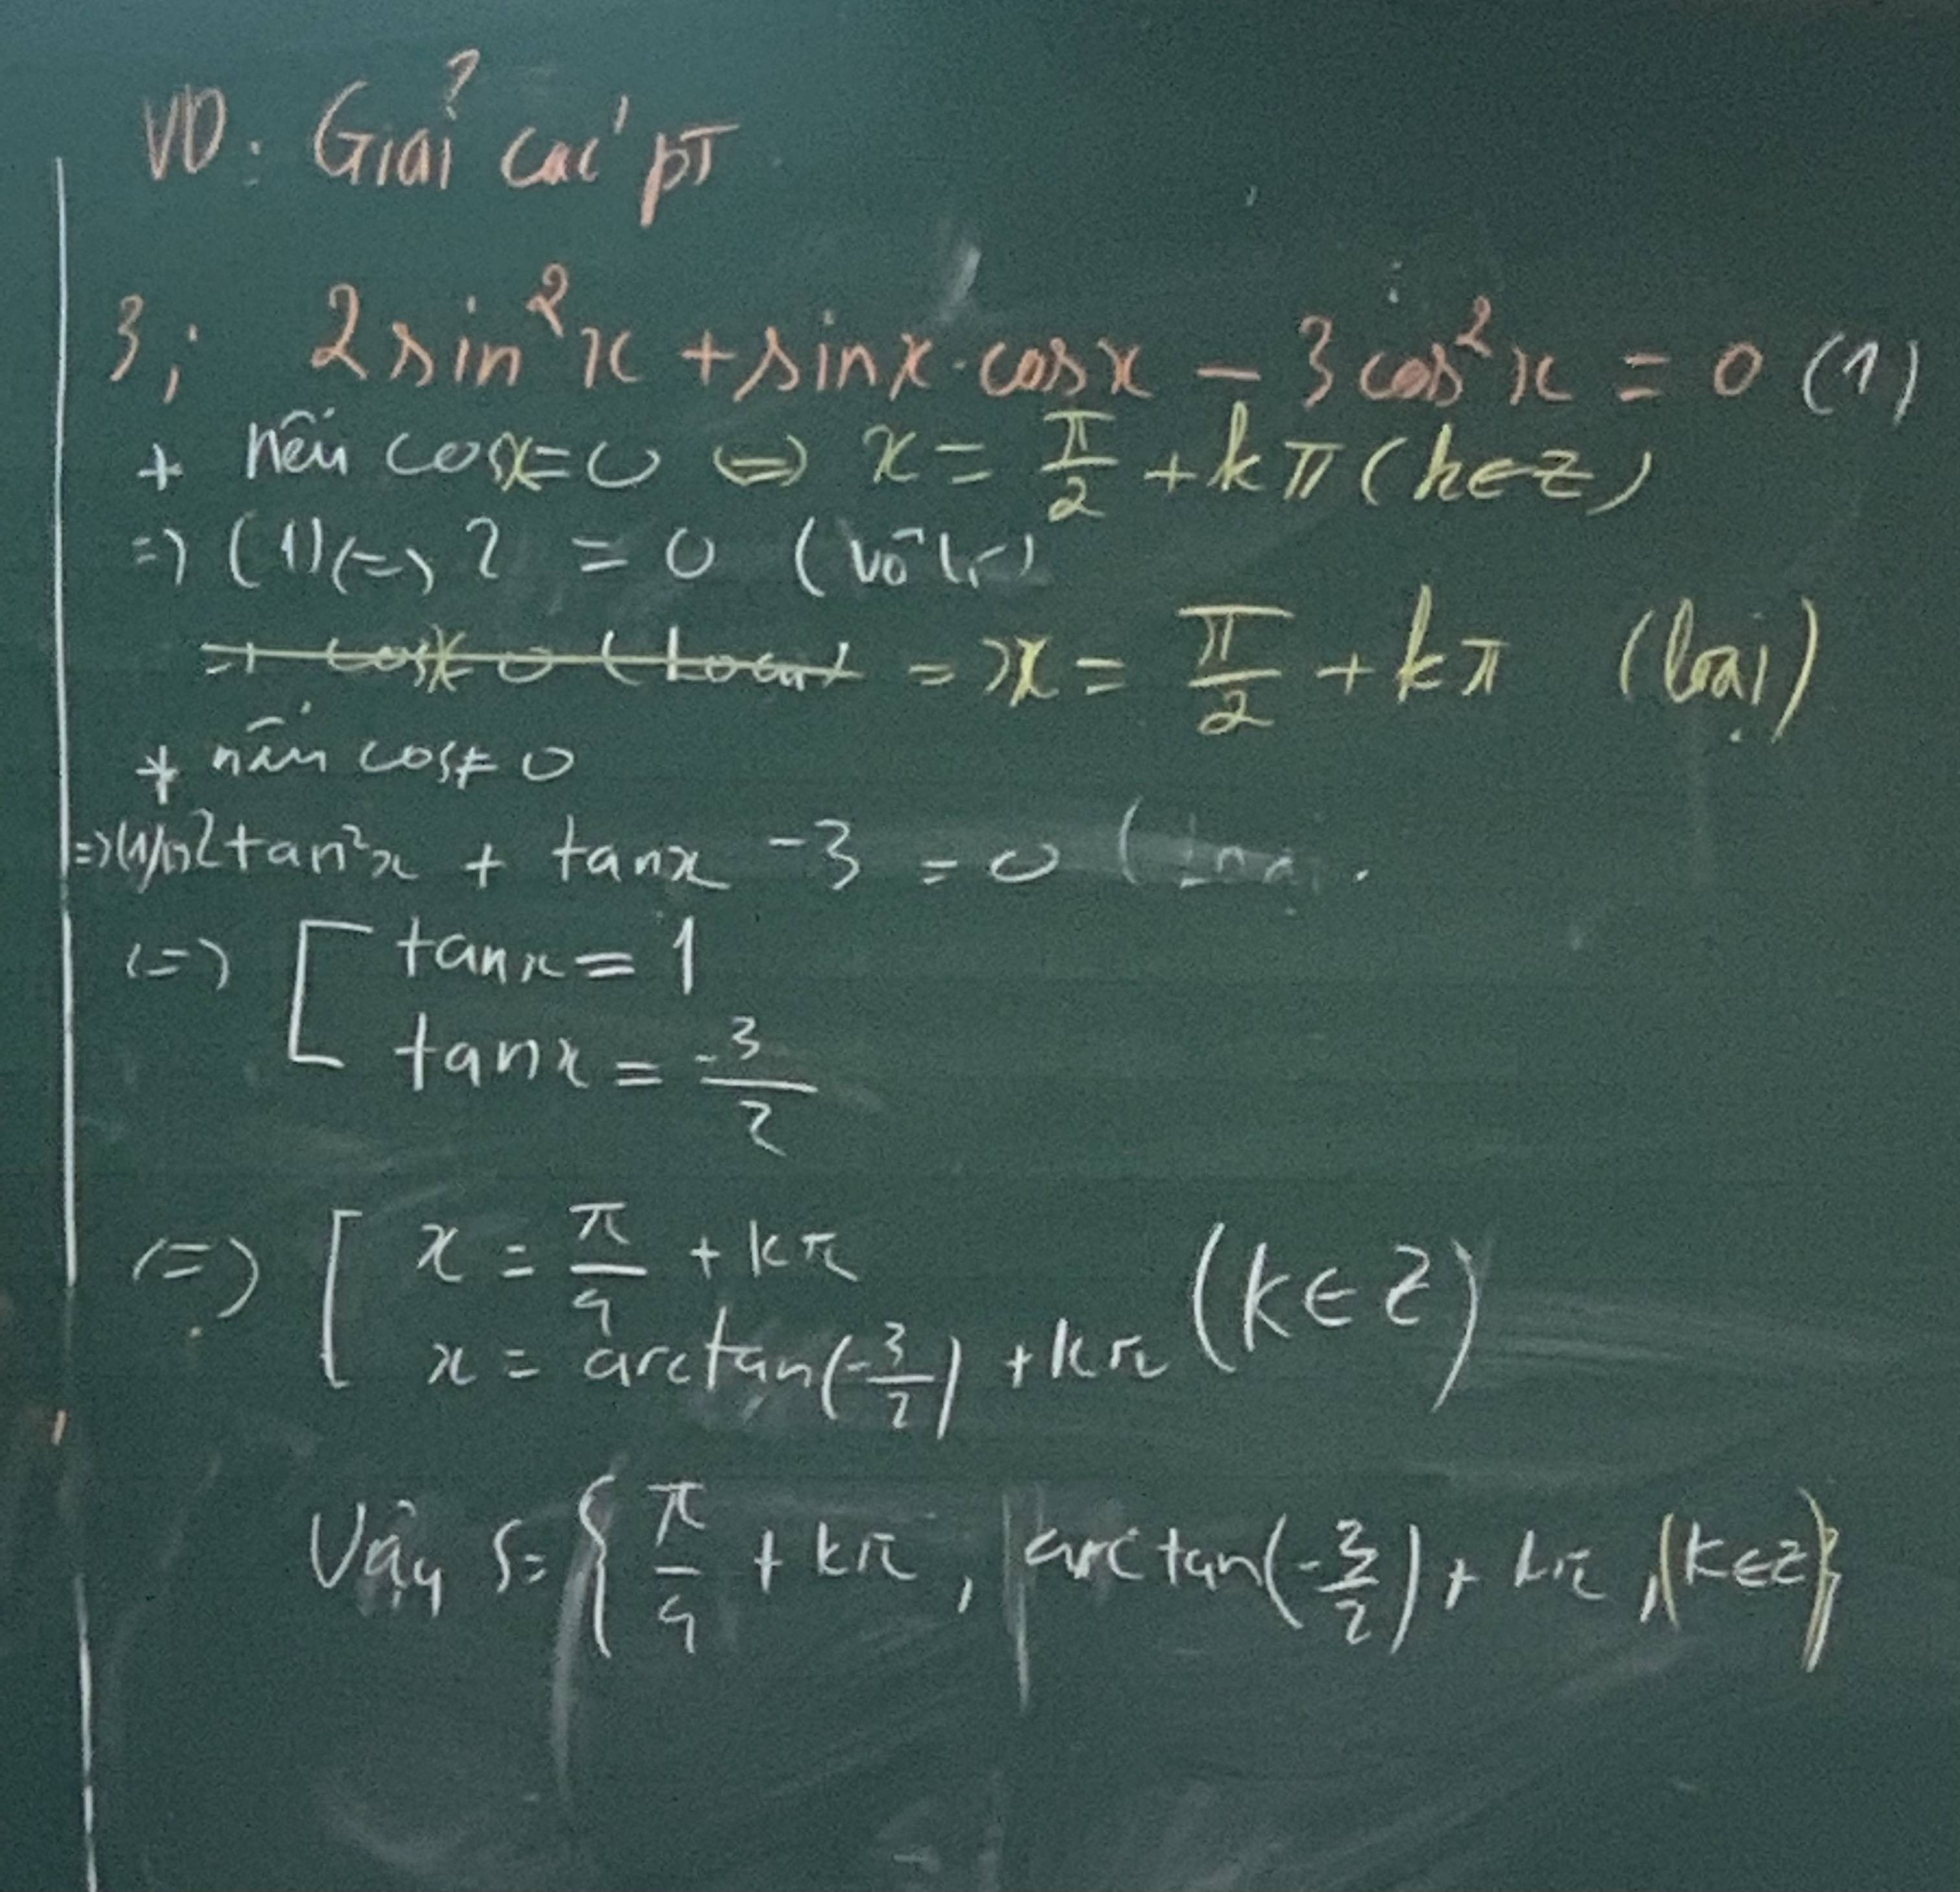 VD: Giải các pT
3; 2sin²x + sinx.cosx - 3cos²x = 0 (1)
+ nếu cosx=0 <=> x = π/2 + kπ (k∈Z)
=> (1) <=> 2 = 0 (vô lí)
=> cosx=0 (Loại) => x = π/2 + kπ (loại)
+ nếu cos≠0
=> (1) <=> 2tan²x + tanx -3 = 0 (
<=> [ tanx = 1
tanx = -3/2
<=> [ x = π/4 + kπ
x = arctan(-3/2) + kπ (k∈Z)
Vậy S= { π/4 + kπ, arctan(-3/2) + kπ, (k∈Z}